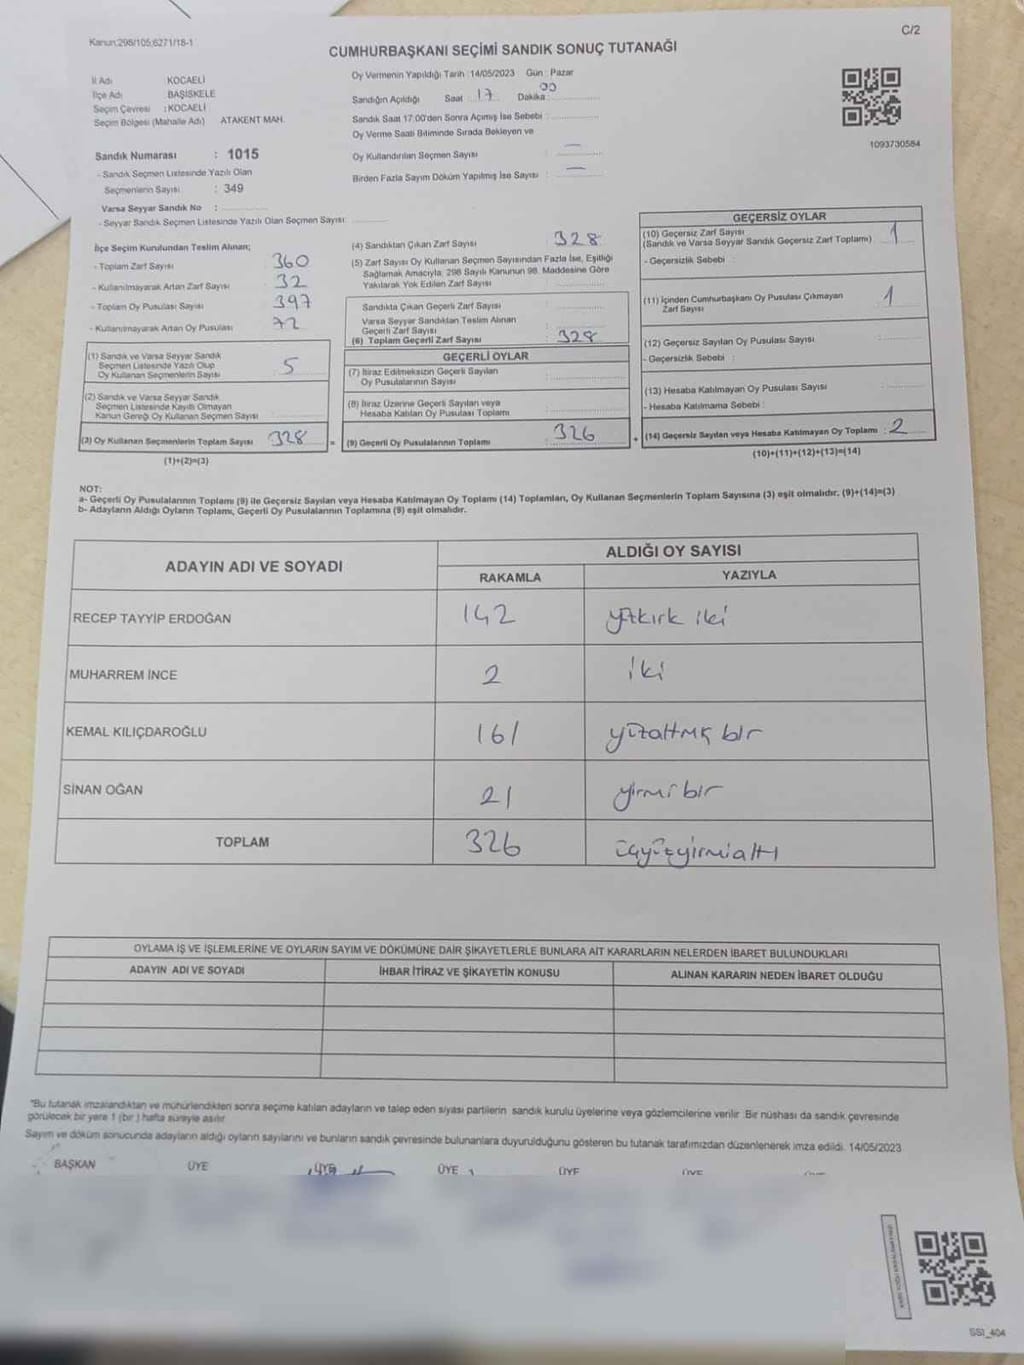 Kanun:298/105;6271/18-1
C/2
CUMHURBAŞKANI SEÇİMİ SANDIK SONUÇ TUTANAĞI
İl Adı : KOCAELİ
İlçe Adı : BAŞİSKELE
Seçim Çevresi : KOCAELİ
Seçim Bölgesi (Mahalle Adı) ATAKENT MAH.
Sandık Numarası : 1015
- Sandık Seçmen Listesinde Yazılı Olan
Seçmenlerin Sayısı : 349
Varsa Seyyar Sandık No :
- Seyyar Sandık Seçmen Listesinde Yazılı Olan Seçmen Sayısı:
Oy Vermenin Yapıldığı Tarih : 14/05/2023 Gün : Pazar
Sandığın Açıldığı Saat : 17 Dakika : 00
Sandık Saat 17:00'den Sonra Açımış İse Sebebi :
Oy Verme Saati Bitiminde Sırada Bekleyen ve
Oy Kullandırılan Seçmen Sayısı : —
Birden Fazla Sayım Döküm Yapılmış İse Sayısı : —
1093730584
İlçe Seçim Kurulundan Teslim Alınan;
- Toplam Zarf Sayısı 360
- Kullanılmayarak Artan Zarf Sayısı 32
- Toplam Oy Pusulası Sayısı 397
- Kullanılmayarak Artan Oy Pusulası 72
(1) Sandık ve Varsa Seyyar Sandık
Seçmen Listesinde Yazılı Olup
Oy Kullanan Seçmenlerin Sayısı 5
(2) Sandık ve Varsa Seyyar Sandık
Seçmen Listesinde Kayıtlı Olmayan
Kanun Gereği Oy Kullanan Seçmen Sayısı
(3) Oy Kullanan Seçmenlerin Toplam Sayısı 328 =
(1)+(2)=(3)
(4) Sandıktan Çıkan Zarf Sayısı 328
(5) Zarf Sayısı Oy Kullanan Seçmen Sayısından Fazla İse, Eşitliği
Sağlamak Amacıyla; 298 Sayılı Kanunun 98. Maddesine Göre
Yakılarak Yok Edilen Zarf Sayısı
Sandıkta Çıkan Geçerli Zarf Sayısı
Varsa Seyyar Sandıktan Teslim Alınan
Geçerli Zarf Sayısı
(6) Toplam Geçerli Zarf Sayısı 328
GEÇERLİ OYLAR
(7) İtiraz Edilmeksizin Geçerli Sayılan
Oy Pusulalarının Sayısı
(8) İtiraz Üzerine Geçerli Sayılan veya
Hesaba Katılan Oy Pusulası Toplamı
(9) Geçerli Oy Pusulalarının Toplamı 326 +
GEÇERSİZ OYLAR
(10) Geçersiz Zarf Sayısı
(Sandık ve Varsa Seyyar Sandık Geçersiz Zarf Toplamı) 1
- Geçersizlik Sebebi :
(11) İçinden Cumhurbaşkanı Oy Pusulası Çıkmayan
Zarf Sayısı 1
(12) Geçersiz Sayılan Oy Pusulası Sayısı :
- Geçersizlik Sebebi :
(13) Hesaba Katılmayan Oy Pusulası Sayısı
- Hesaba Katılmama Sebebi :
(14) Geçersiz Sayılan veya Hesaba Katılmayan Oy Toplamı : 2
(10)+(11)+(12)+(13)=(14)
NOT:
a- Geçerli Oy Pusulalarının Toplamı (9) ile Geçersiz Sayılan veya Hesaba Katılmayan Oy Toplamı (14) Toplamları, Oy Kullanan Seçmenlerin Toplam Sayısına (3) eşit olmalıdır. (9)+(14)=(3)
b- Adayların Aldığı Oyların Toplamı, Geçerli Oy Pusulalarının Toplamına (9) eşit olmalıdır.
ADAYIN ADI VE SOYADI
ALDIĞI OY SAYISI
RAKAMLA YAZIYLA
RECEP TAYYİP ERDOĞAN 142 yüzkırk iki
MUHARREM İNCE 2 iki
KEMAL KILIÇDAROĞLU 161 yüzaltmış bir
SİNAN OĞAN 21 yirmi bir
TOPLAM 326 üçyüzyirmialtı
OYLAMA İŞ VE İŞLEMLERİNE VE OYLARIN SAYIM VE DÖKÜMÜNE DAİR ŞİKAYETLERLE BUNLARA AİT KARARLARIN NELERDEN İBARET BULUNDUKLARI
ADAYIN ADI VE SOYADI İHBAR İTİRAZ VE ŞİKAYETİN KONUSU ALINAN KARARIN NEDEN İBARET OLDUĞU
"Bu tutanak imzalandıktan ve mühürlendikten sonra seçime katılan adayların ve talep eden siyasi partilerin sandık kurulu üyelerine veya gözlemcilerine verilir. Bir nüshası da sandık çevresinde
görülecek bir yere 1 (bir ) hafta süreyle asılır.
Sayım ve döküm sonucunda adayların aldığı oyların sayılarını ve bunların sandık çevresinde bulunanlara duyurulduğunu gösteren bu tutanak tarafımızdan düzenlenerek imza edildi. 14/05/2023
BAŞKAN ÜYE ÜYE ÜYE ÜYE ÜYE
SS1_404